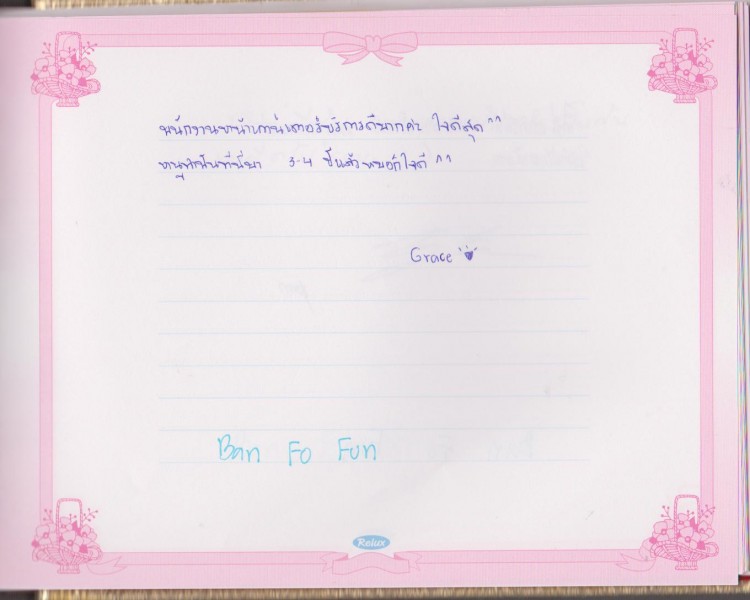 พนักงานหน้าเคาน์เตอร์บริการดีมากค่ะ ใจดีสุด ^^
หนูทำฟันที่นี่มา 3-4 ปีแล้วหมอก็ใจดี ^^
Grace
Ban Fo Fun
Relux